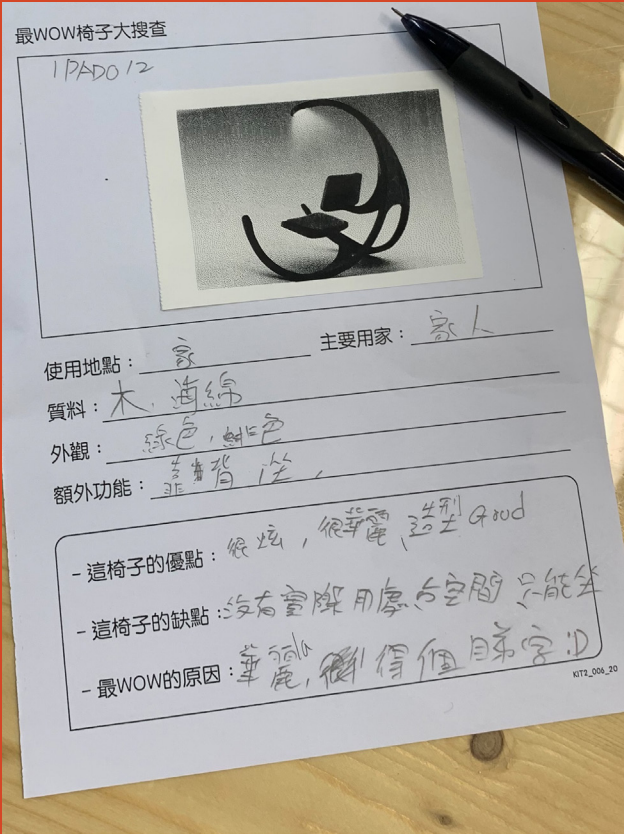 最WOW椅子大搜查
IPADO12
使用地點：家 主要用家：家人
質料：木、海綿
外觀：綠色，啡色
額外功能：靠背 坐，
- 這椅子的優點：很炫，很華麗、造型Good
- 這椅子的缺點：沒有實際用處 占空間 只能坐
- 最WOW的原因：華麗, 得個 字 :D
KIT2_006_20